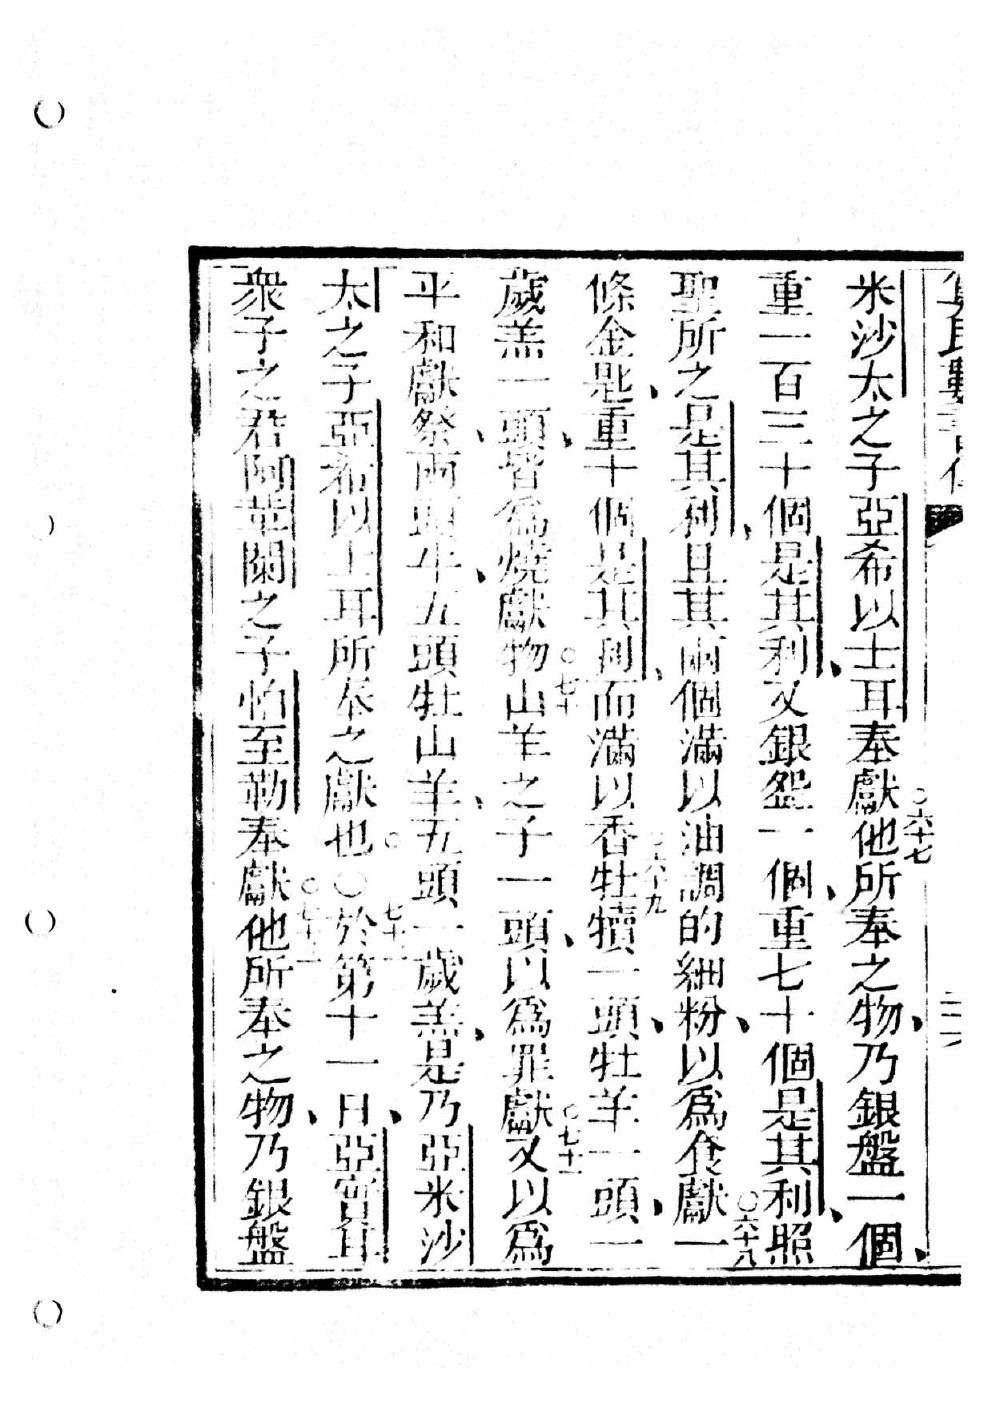 米沙太之子亞希以士耳奉獻○六十七他所奉之物、乃銀盤一個、
重一百三十個是其利、又銀盌一個、重七十個是其利、照
聖所之是其利、且其兩個滿以油調的細粉、以爲食獻○六十八一
條金匙、重十個是其利、而滿以香○六十九牡犢一頭、牡羊一頭、一
歲羔一頭、皆爲燒獻物○七十山羊之子一頭、以爲罪獻○七十一又以爲
平和獻祭、兩頭牛、五頭牡山羊、五頭一歲羔、是乃亞米沙
太之子亞希以士耳所奉之獻也○○七十二於第十一日、亞實耳
衆子之君阿革闌之子怕至勒奉獻○七十三他所奉之物、乃銀盤
數書傳